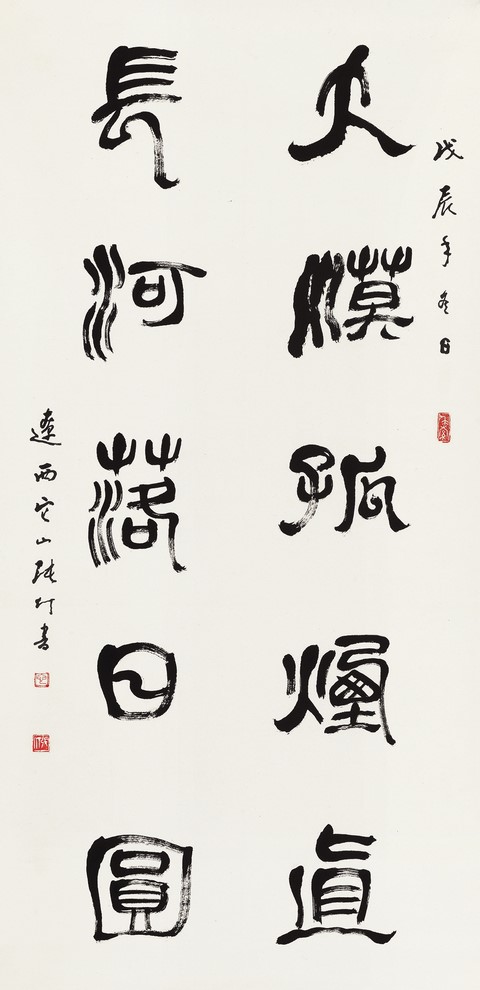 戊辰年冬日
大漠孤煙直
長河落日圓
遼西它山張仃書